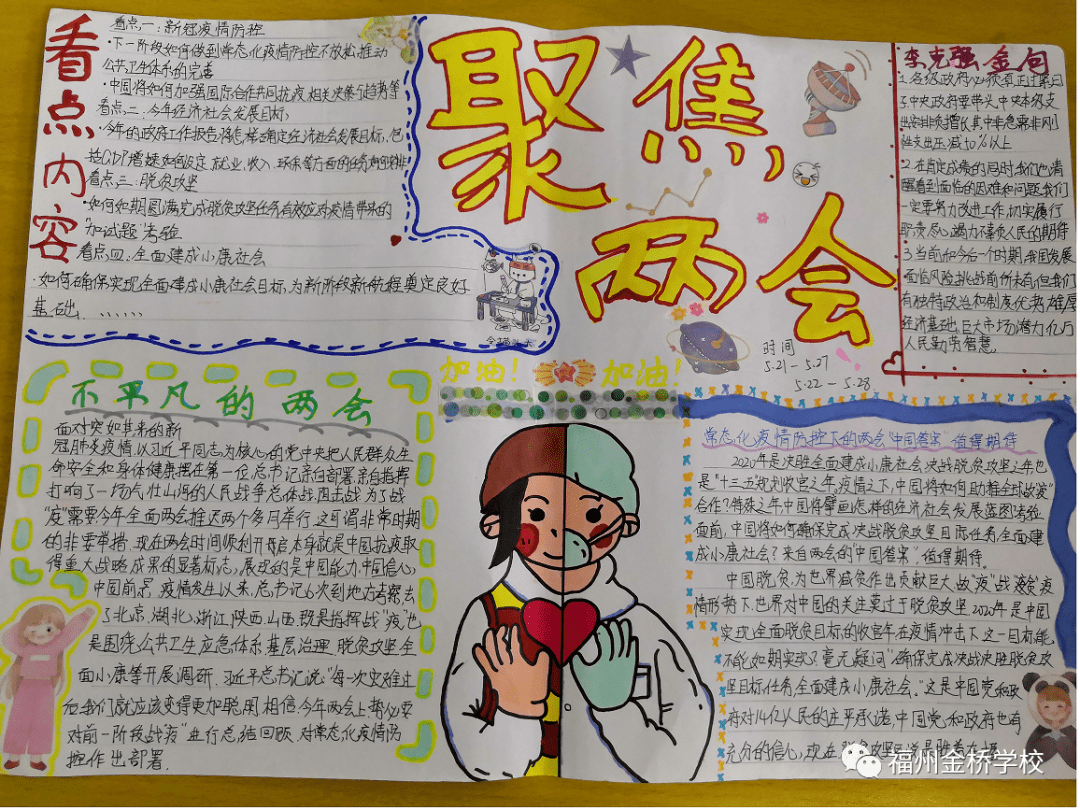 看点内容
看点一：新冠疫情防控
·下一阶段如何做到常态化疫情防控不放松,推动
公共卫生体系的完善
·中国将如何加强国际合作共同抗疫,相关决策引趋势等
看点二：今年经济社会发展目标
·今年的政府工作报告将怎样确定经济社会发展目标,包
括GDP增速如何设定,就业,收入,环保等方面的任务如何安排
看点三：脱贫攻坚
·如何如期圆满完成脱贫攻坚任务有效应对疫情带来的
"加试题"考验
看点四：全面建成小康社会
·如何确保实现全面建成小康社会目标,为新阶段新航程奠定良好
基础......
聚焦
两会
时间
5.21－5.27
5.22－5.28
李克强金句
1.各级政府必须真正过紧日
子中央政府要带头,中央本级支
出安排负增长其中非急需非刚
性支出压减50%以上
2.在肯定成绩的同时,我们也清
醒看到面临的困难和问题,我们
一定要努力改进工作,切实履行
职责,尽心竭力不辜负人民的期待
3.当前和今后一个时期,我国发展
面临风险挑战前所未有,但我们
有独特政治和制度优势,雄厚
经济基础,巨大市场潜力,亿万
人民勤劳智慧。
不平凡的两会
面对突如其来的新
冠肺炎疫情,以习近平同志为核心的党中央把人民群众生
命安全和身体健康摆在第一位,总书记亲自部署,亲自指挥
打响了一场气壮山河的人民战争总体战,阻击战为了战
"疫"需要,今年全面两会推迟两个多月举行,这可谓非常时期
的非要举措,现在两会时间顺利开启本身就是中国抗疫取
得重大战略成果的显著标志,展现的是中国能力,中国信心,
中国前景,疫情发生以来,总书记6次到地方考察,去
了北京,湖北,浙江,陕西,山西,既是指挥战"疫",也
是围绕公共卫生应急体系基层治理,脱贫攻坚全
面小康等开展调研,习近平总书记说"每一次灾难过
后我们就应该变得更加聪明"相信今年两会上势必要
对前一阶段战"疫"进行总结回顾,对常态化疫情防
控作出部署.
加油！ 加油！
常态化疫情防控下的两会"中国答案"值得期待
2020年是决胜全面建成小康社会,决战脱贫攻坚之年也
是"十三五"规划收官之年,疫情之下,中国将如何助推全球战"疫"
合作?特殊之年,中国将擘画怎样的经济社会发展蓝图?考验
面前,中国将如何确保完成决战脱贫攻坚目标任务,全面建
成小康社会?来自两会的"中国答案",值得期待。
中国脱贫,为世界减贫作出贡献巨大,战"疫"战"贫",疫
情形势下,世界对中国的关注莫过于脱贫攻坚,2020年是中国
实现全面脱贫目标的收官年,在疫情冲击下这一目标能
不能如期实现?毫无疑问"确保完成决战决胜脱贫攻
坚目标任务,全面建成小康社会。"这是中国党和政
府对14亿人民的庄严承诺,中国党和政府也有
充分的信心,现在
福州金桥学校